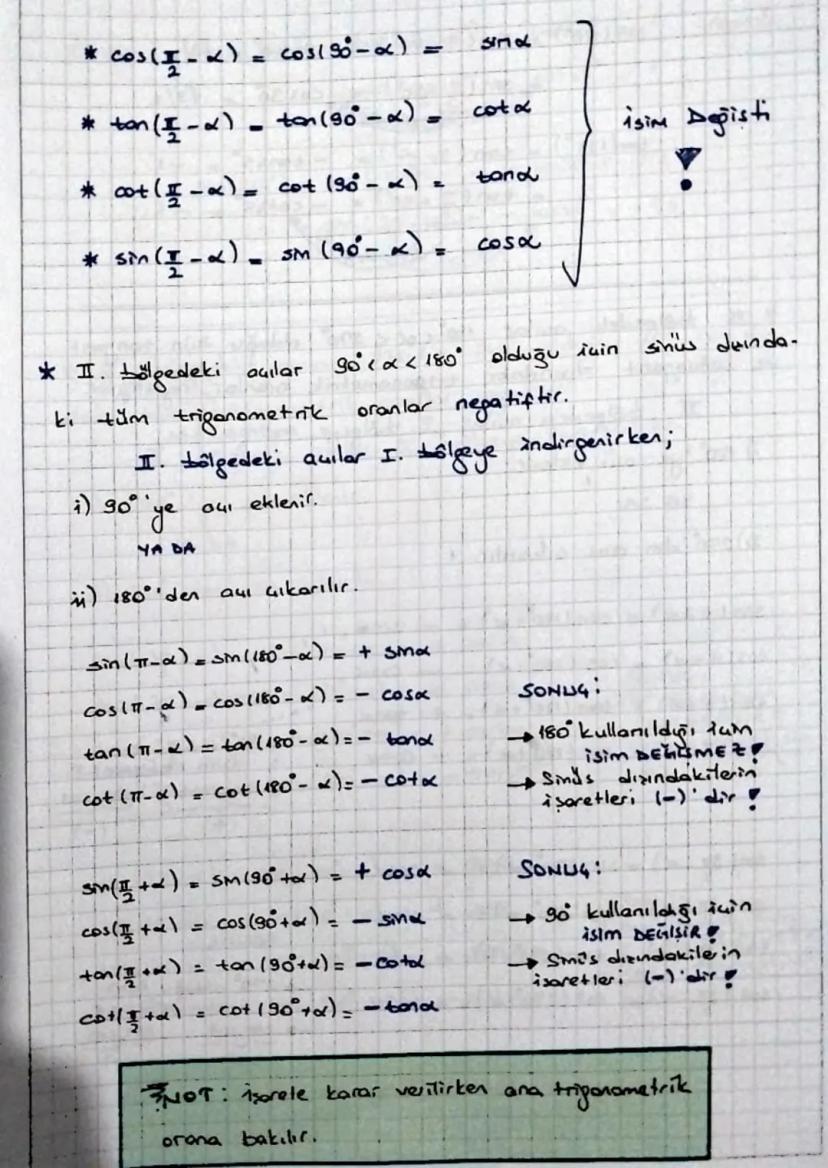 * cos(π/2 - α) = cos(90° - α) = sinα
* tan(π/2 - α) = tan(90° - α) = cotα
isim Değişti !
* cot(π/2 - α) = cot(90° - α) = tanα
* sin(π/2 - α) = sin(90° - α) = cosα
* II. bölgedeki açılar 90° < α < 180° olduğu için sinüs dışında-
ki tüm trigonometrik oranlar negatiftir.
II. bölgedeki açılar I. bölgeye indirgenirken;
i) 90°'ye açı eklenir.
YA DA
ii) 180°'den açı çıkarılır.
sin(π-α) = sin(180°-α) = + sinα
cos(π-α) = cos(180°-α) = - cosα
tan(π-α) = tan(180°-α) = - tanα
cot(π-α) = cot(180°-α) = - cotα
SONUÇ:
→ 180° kullanıldığı için
isim DEĞİŞMEZ!
→ Sinüs dışındakilerin
işaretleri (-)'dir !
sin(π/2 +α) = sin(90°+α) = + cosα
cos(π/2 +α) = cos(90+α) = - sinα
tan(π/2 +α) = tan(90°+α) = - cotα
cot(π/2 +α) = cot(90°+α) = - tanα
SONUÇ:
→ 90° kullanıldığı için
isim DEĞİŞİR!
→ Sinüs dışındakilerin
işaretleri (-)'dir !
NOT: işarete karar verilirken ana trigonometrik
orana bakılır.